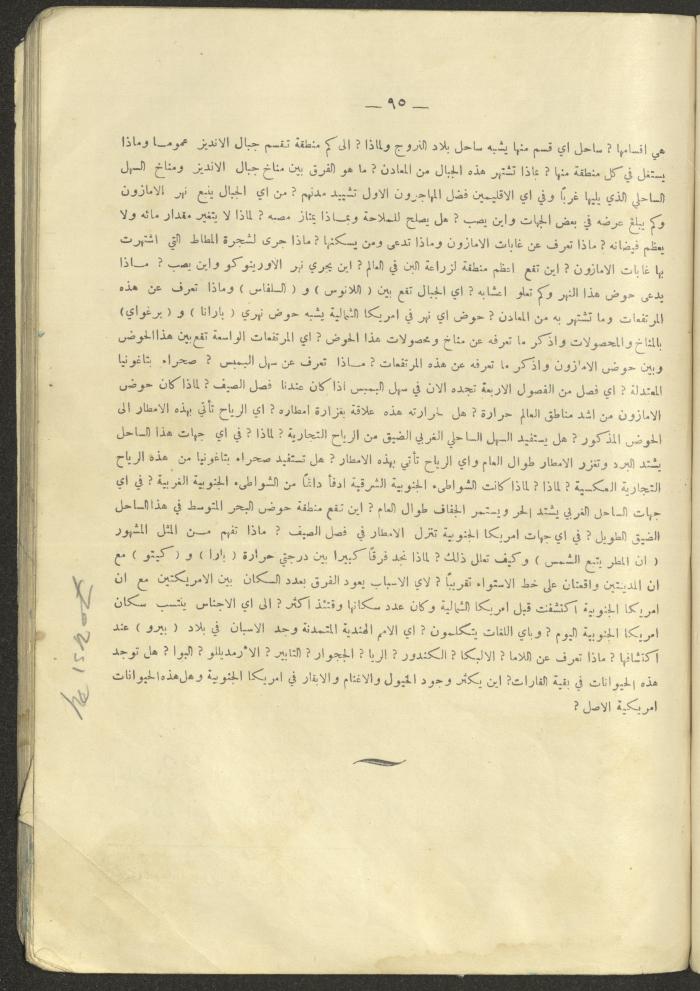 — ٩٥ —
هي اقسامها ? ساحل اي قسم منها يشبه ساحل بلاد النروج ولماذا ? الى كم منطقة تنقسم جبال الانديز عموما وماذا
يستغل في كل منطقة منها ? بماذا تشتهر هذه الجبال من المعادن ? ما هو الفرق بين مناخ جبال الانديز ومناخ السهل
الساحلي الذي يليها غربًا وفي اي الاقليمين فضل المهاجرون الاول تشييد مدنهم ? من اي الجبال ينبع نهر الامازون
وكم يبلغ عرضه في بعض الجهات واين يصب ? هل يصلح للملاحة وبماذا يمتاز مصبه ? لماذا لا يتغير مقدار مائه ولا
يعظم فيضانه ? ماذا تعرف عن غابات الامازون وماذا تدعى ومن يسكنها ? ماذا جرى لشجرة المطاط التي اشتهرت
بها غابات الامازون ? اين تقع اعظم منطقة لزراعة البن في العالم ? اين يجري نهر الاورينوكو واين يصب ? ماذا
يدعى حوض هذا النهر وكم تعلو اعشابه ? اي الجبال تقع بين ( اللانوس ) و ( السلفاس ) وماذا تعرف عن هذه
المرتفعات وما تشتهر به من المعادن ? حوض اي نهر في امريكا الشمالية يشبه حوض نهري ( بارانا ) و ( برغواي )
بالمناخ والمحصولات واذكر ما تعرفه عن مناخ ومحصولات هذا الحوض ? اي المرتفعات الواسعة تقع بين هذا الحوض
وبين حوض الامازون واذكر ما تعرفه عن هذه المرتفعات ? ماذا تعرف عن سهل البمبس ? صحراء بتاغونيا
المعتدلة ? اي فصل من الفصول الاربعة تجده الان في سهل البمبس اذا كان عندنا فصل الصيف ? لماذا كان حوض
الامازون من اشد مناطق العالم حرارة ? هل لحرارته هذه علاقة بغزارة امطاره ? اي الرياح تأتي بهذه الامطار الى
الحوض المذكور ? هل يستفيد السهل الساحلي الغربي الضيق من الرياح التجارية ? لماذا ? في اي جهات هذا الساحل
يشتد البرد وتغزر الامطار طوال العام واي الرياح تأتي بهذه الامطار ? هل تستفيد صحراء بتاغونيا من هذه الرياح
التجارية العكسية ? لماذا ? لماذا كانت الشواطىء الجنوبية الشرقية ادفأ دائمًا من الشواطىء الجنوبية الغربية ? في اي
جهات الساحل الغربي يشتد الحر ويستمر الجفاف طوال العام ? اين تقع منطقة حوض البحر المتوسط في هذا الساحل
الضيق الطويل ? في اي جهات امريكا الجنوبية تنزل الامطار في فصل الصيف ? ماذا تفهم من المثل المشهور
( ان المطر يتبع الشمس ) وكيف تعلل ذلك ? لماذا نجد فرقًا كبيرا بين درجتي حرارة ( بارا ) و ( كيتو ) مع
ان المدينتين واقعتان على خط الاستواء تقريبًا ? لاي الاسباب يعود الفرق بعدد السكان بين الامريكتين مع ان
امريكا الجنوبية اكتشفت قبل امريكا الشمالية وكان عدد سكانها وقتئذ اكثر ? الى اي الاجناس ينتسب سكان
امريكا الجنوبية اليوم ? وباي اللغات يتكلمون ? اي الامم الهندية المتمدنة وجد الاسبان في بلاد ( بيرو ) عند
اكتشافها ? ماذا تعرف عن اللاما ? الالبكا ? الكندور ? الريا ? الججوار ? التابير ? الأرمديللو ? البوا ? هل توجد
هذه الحيوانات في بقية القارات ? اين يكثر وجود الخيول والاغنام والابقار في امريكا الجنوبية وهل هذه الحيوانات
امريكية الاصل ?